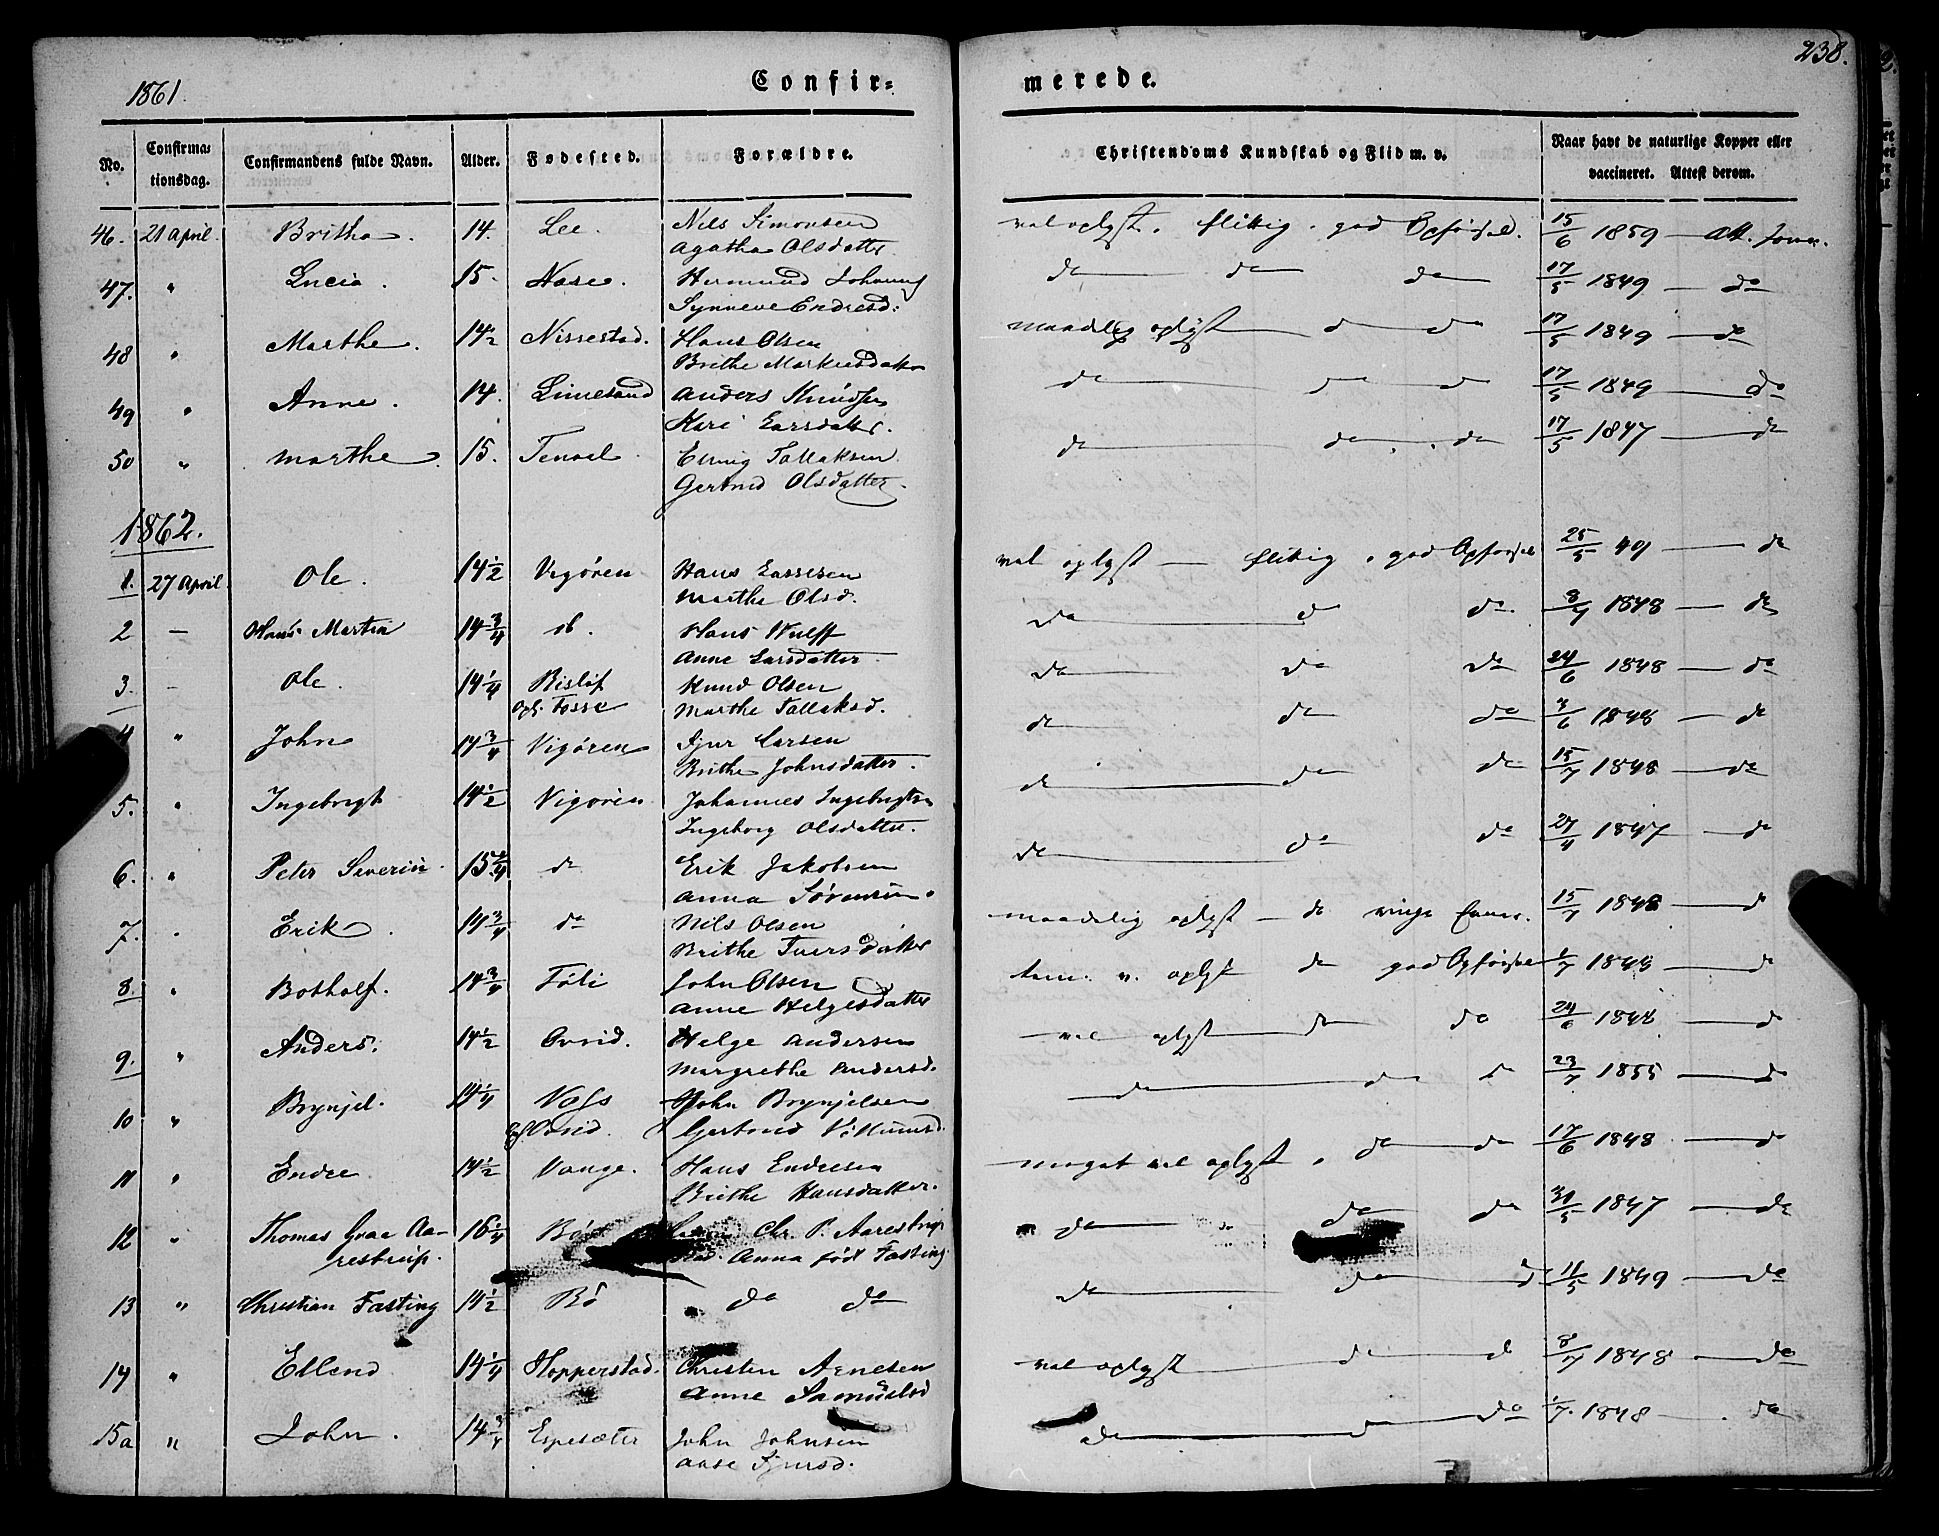 238.
1861.
Confir=
merede.
No.
Confirma=
tionsdag.
Confirmandens fulde Navn.
Alder.
Fødested.
Forældre.
Christendoms Kundskab og Flid m. v.
Naar havt de naturlige Kopper eller
vaccineret. Attest derom.
46. 21 April. Britha. 14. Lee. Nils Simonsen
Agatha Olsdatter
vel oplyst. flittig. god Opførsel. 15/6 1859 — Att.
47. " Lucia. 15. Nase. Hermund Johannes
Synneve Endresd:
do do do 17/5 1849 — do
48 " Marthe. 14½ Nissestad. Hans Olsen
Brithe Markusdatter
maadelig oplyst do do 17/5 1849 — do
49 " Anne. 14. Limesand Anders Knudsen
Kari Larsdatter.
do do do 17/5 1849 — do
50 " Marthe. 15. Tenael. Elling Tollaksen
Gertrud Olsdatter.
do do do 17/5 1847 — do
1862.
1. 27 April. Ole. 14½ Vigøren Hans Lassesen
Marthe Olsd.
vel oplyst — flittig. god Opførsel 25/5 49 — do
2 — Hans Martin 14¾ do. Hans Wulff
Anne Larsdatter
do do do. 8/7 1848 — do
3. — Ole. 14¼ Risløf Knud Olsen
opf. Fosse Marthe Tollaksd.
do do do 24/6 1848 — do
4 " John 14¾ Vigøren Sjur Larsen
Brithe Johnsdatter.
do do do 3/6 1848 — do
5. " Ingebrigt 14½ Vigøren Johannes Ingebrigtsen
Ingeborg Olsdatter.
do do do 15/7 1848 — do
6. " Peter Severin. 15¾ do Erik Jakobsen
Anna Sørensen.
do do do 27/4 1847 — do
7. " Erik. 14¾ do Nils Olsen
Brithe Iversdatter
maadelig oplyst — do ringe Evner. 15/7 1848 — do
8. " Botholf. 14¾ Føli John Olsen
Anne Helgesdatter
tem. v. oplyst do god Opførsel 1/7 1848 — do
9. " Anders. 14½ Ovrid. Helge Andersen
Margrethe Andersd.
vel oplyst do do 24/6 1848 — do
10 " Brynjel. 14¼ Nafs John Brynjelsen
opf Ovrid. Gertrud
do do do 23/7 1855 — do
11 " Endre 14½ Vange. Hans Endresen
Brithe Hansdatter.
meget vel oplyst. do do 17/6 1848 — do
12 " Thomas Grae Aa- 16¼ Bø Chr. P. Aarestrup
restrup. Anna født Fasting
do " do do 31/5 1847 — do
13 " Christian Fasting 14½ Bø do do
do do do 11/5 1849 — do
14 " Ellend 14¼ Hopperstad. Christen Arnesen
Anne Samuelsd
vel oplyst do do 8/7 1848 — do
15a " John. 14¾ Espesæter John Johnsen
Aase Sjursd.
do do do 1/7. 1848 — do